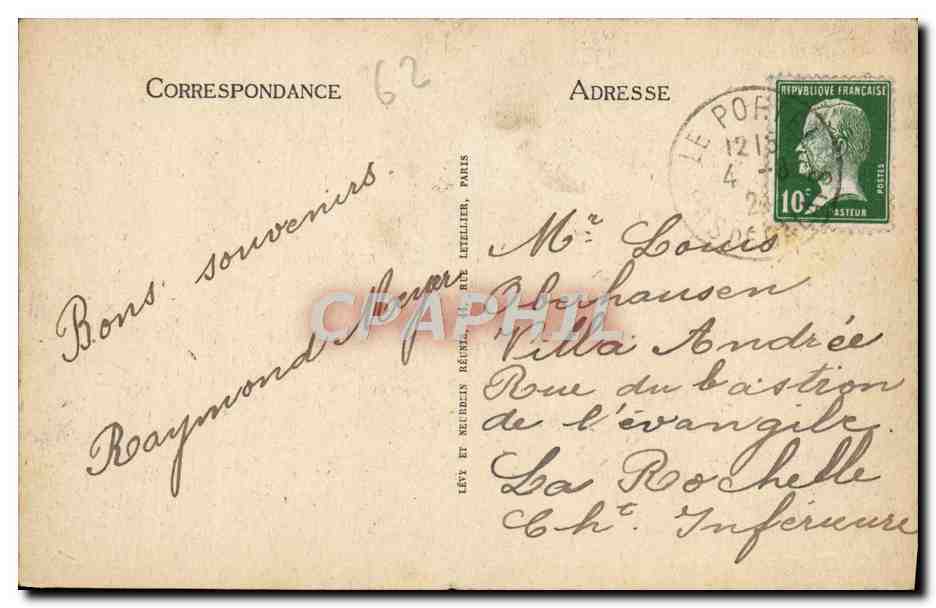 CORRESPONDANCE
62
ADRESSE
Bons souvenirs.
Raymond Mayer
LÉVY ET NEURDEIN RÉUNIS, 44, RUE LETELLIER, PARIS
REPUBLIQUE FRANÇAISE
10c
POSTES
PASTEUR
LE PORTEL
12 15
4 -8
23
PAS DE CALAIS
Mr. Louis
Oberhausen
Villa Andrée
Rue du bastion
de l'évangile.
La Rochelle
Cht. Inférieure
CPAPHIL